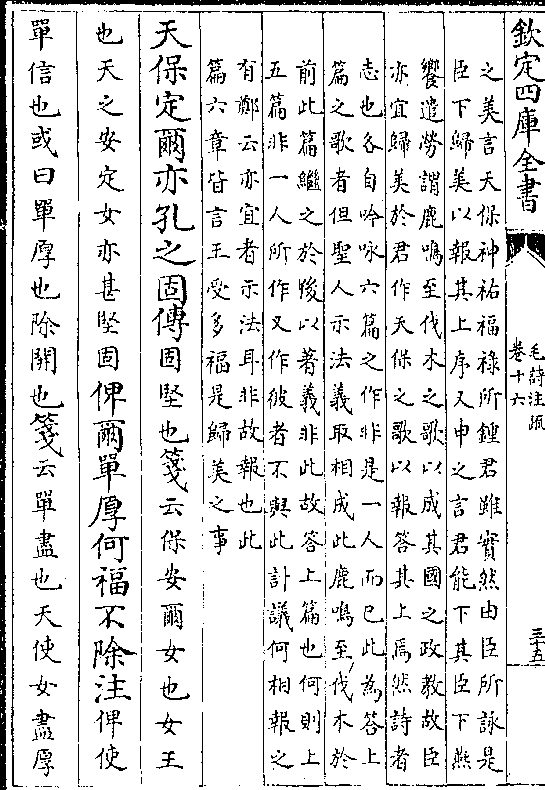 欽定四庫全書
毛詩注疏
卷十六
三十五
之美言天保神祐福祿所鍾君雖實然由臣所詠是
臣下歸美以報其上序又申之言君能下其臣下燕
饗遣勞謂鹿鳴至伐木之歌以成其國之政教故臣
亦宜歸美於君作天保之歌以報答其上焉然詩者
志也各自吟咏六篇之作非是一人而已此為答上
篇之歌者但聖人示法義取相成此鹿鳴至伐木於
前此篇繼之於後以著義非此故答上篇也何則上
五篇非一人所作又作彼者不與此計議何相報之
有鄭云亦宜者示法耳非故報也此
篇六章皆言王受多福是歸美之事
天保定爾亦孔之固傳固堅也箋云保安爾女也女王
也天之安定女亦甚堅固俾爾單厚何福不除注俾使
單信也或曰單厚也除開也箋云單盡也天使女盡厚